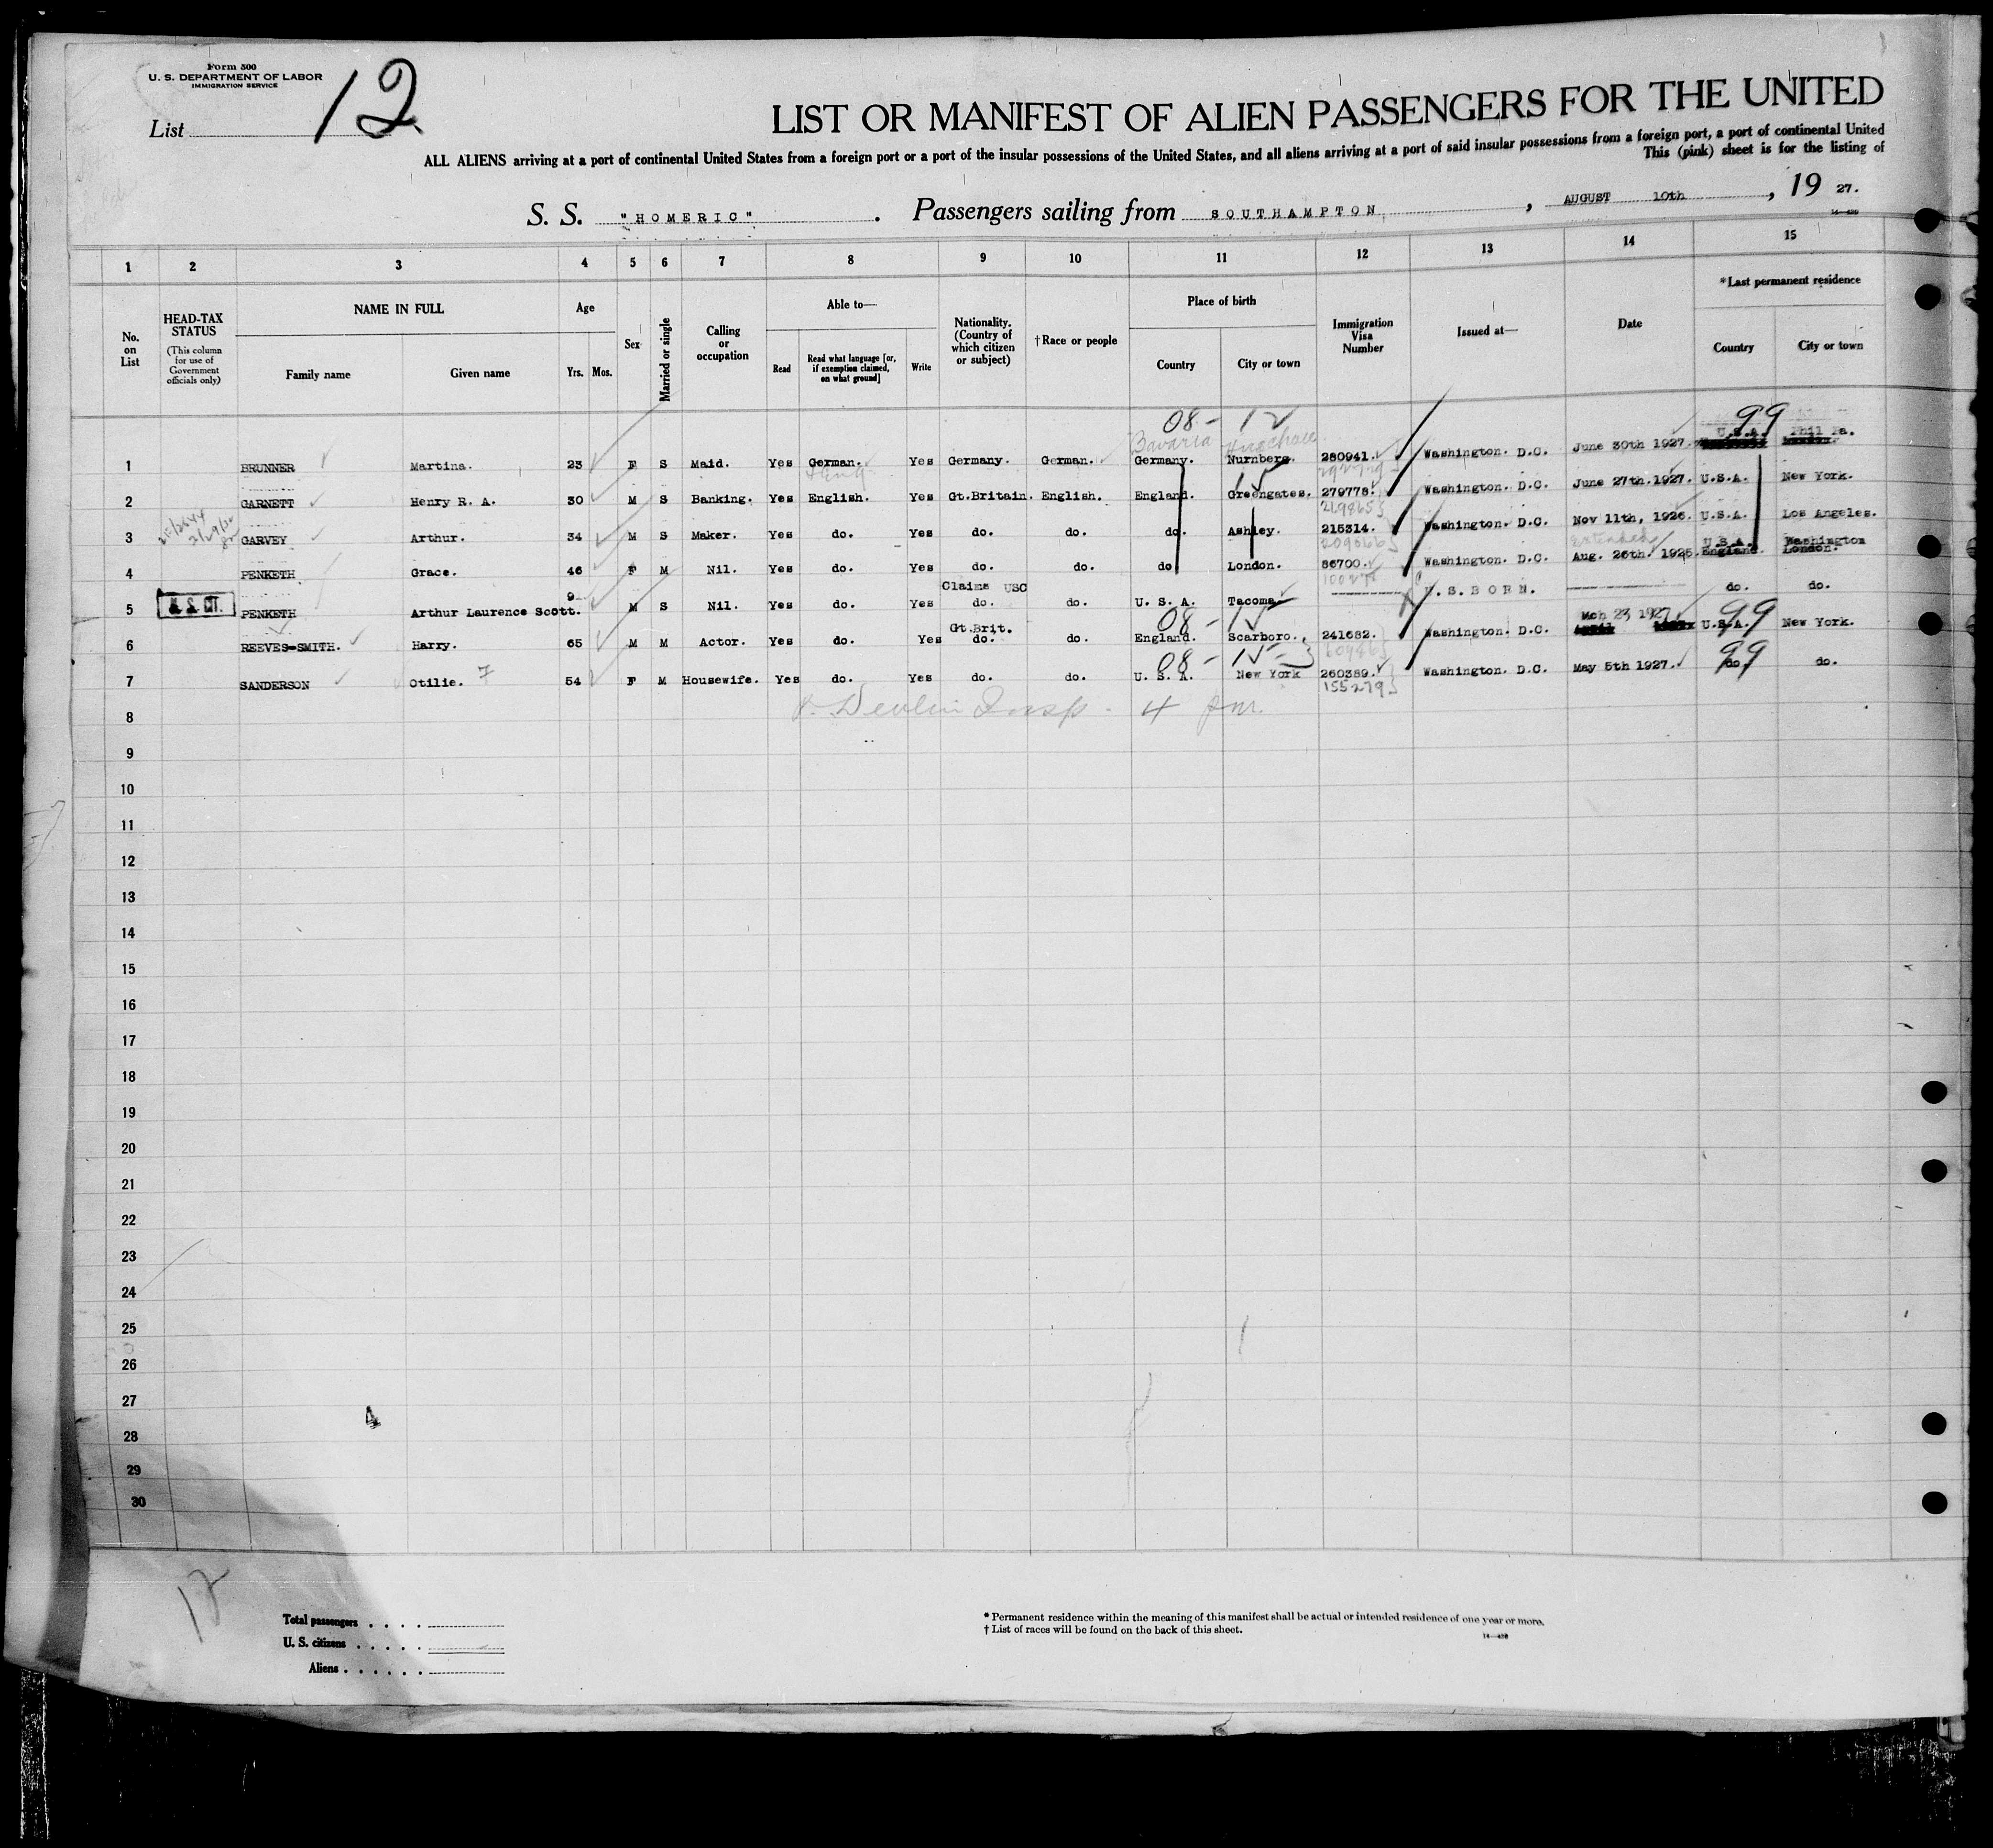 Form 500
U. S. DEPARTMENT OF LABOR
IMMIGRATION SERVICE
List 12
LIST OR MANIFEST OF ALIEN PASSENGERS FOR THE UNITED
ALL ALIENS arriving at a port of continental United States from a foreign port or a port of the insular possessions of the United States, and all aliens arriving at a port of said insular possessions from a foreign port, a port of continental United
This (pink) sheet is for the listing of
S. S. "HOMERIC" . Passengers sailing from SOUTHAMPTON, , AUGUST 10th , 19 27.
1 2 3 4 5 6 7 8 9 10 11 12 13 14 15
No. on List
HEAD-TAX STATUS (This column for use of Government officials only)
NAME IN FULL
Family name Given name
Age
Yrs. Mos.
Sex
Married or single
Calling or occupation
Able to—
Read
Read what language [or, if exemption claimed, on what ground]
Write
Nationality. (Country of which citizen or subject)
†Race or people
Place of birth
Country City or town
Immigration Visa Number
Issued at—
Date
*Last permanent residence
Country City or town
08 - 12 99
Bavaria U.S.A. Phil Pa.
1 BRUNNER Martina. 23 F S Maid. Yes German. Yes Germany. German. Germany. Nurnberg. 280941. Washington. D.C. June 30th 1927.
2 GARNETT Henry R. A. 30 M S Banking. Yes English. Yes Gt.Britain. English. England. Greengates. 279778. Washington. D.C. June 27th.1927. U.S.A. New York.
219865
3 GARVEY Arthur. 34 M S Maker. Yes do. Yes do. do. do. Ashley. 215314. Washington. D.C. Nov 11th, 1926. U.S.A. Los Angeles.
Extended U.S.A. Washington
4 PENKETH Grace. 46 F M Nil. Yes do. Yes do. do. do London. 86700. Washington. D.C. Aug. 26th. 1925. England. London.
Claims USC
5 PENKETH Arthur Laurence Scott. 9 M S Nil. Yes do. Yes do. do. U. S. A. Tacoma U.S.BORN. do. do.
Gt.Brit. 08 - 15 Mch 23 1927 99
6 REEVES-SMITH. Harry. 65 M M Actor. Yes do. Yes do. do. England. Scarboro., 241682. Washington. D.C. U.S.A. New York.
08 - 15 99
7 SANDERSON Otilie. 7 54 F M Housewife. Yes do. Yes do. do. U. S. A. New York 260389. Washington. D.C. May 5th 1927. do. do.
155279
8
9
10
11
12
13
14
15
16
17
18
19
20
21
22
23
24
25
26
27
28
29
30
12
Total passengers
U. S. citizens
Aliens
* Permanent residence within the meaning of this manifest shall be actual or intended residence of one year or more.
† List of races will be found on the back of this sheet.